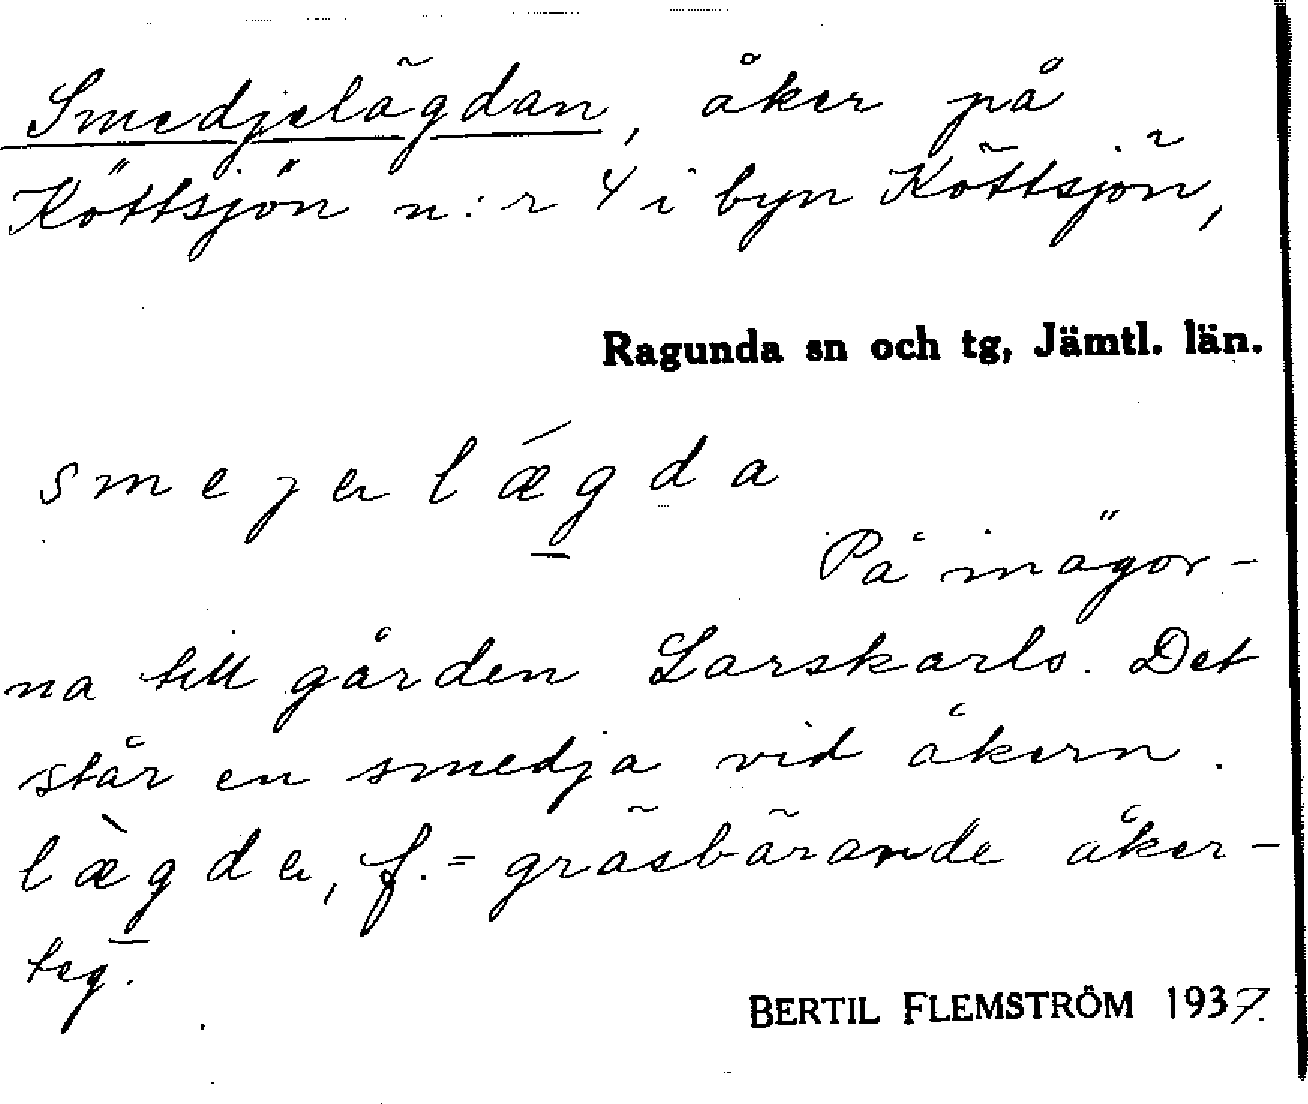 Smedjelägdan, åker på
Köttsjön n:r 4 i byn Köttsjön,
Ragunda sn och tg, Jämtl. län.
smejəlǽg̲da
På inägor-
na till gården Larskarls. Det
står en smedja vid åkern.
læ̀g̲də, f. = gräsbärande åker-
teg.
BERTIL FLEMSTRÖM 1937.